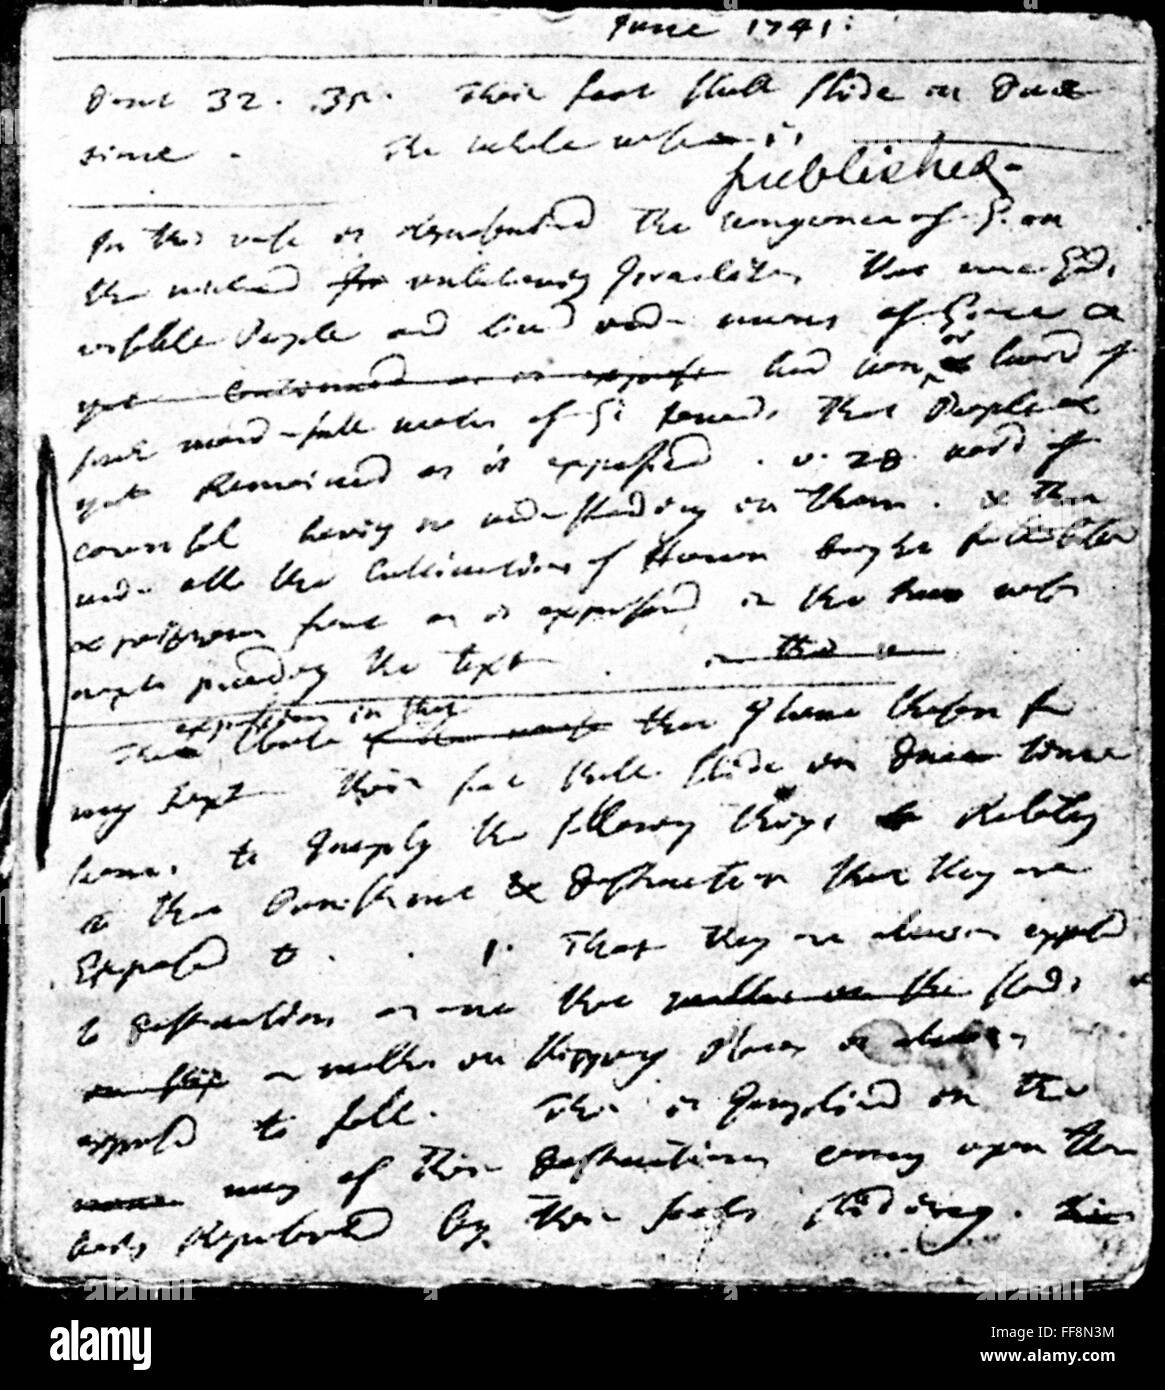 June 1741.
Deut 32. 35. Their foot shall slide in Due
time. The whole is
published.
In this verse is the vengeance of G. on
the wicked unbelieving Israelites that were Gods
visible People and lived under means of Grace &
yet continued as is exposed had or heard of
such wonderfull works of G. towards that People
yet Remained as is expressed v. 28. void of
counsel having no understanding in them. & that
under all the Cultivations of Heaven brought forth bitter
& poisonous fruit as is expressed in the two verses
next preceding the text.
expression in that
The that I have chosen for
my text their foot shall slide in Due time
seems to Imply the following things Relating
to that Punishment & Destruction that they are
Exposed to. 1. That they are always exposed
to Destruction as one that walks in the stands
or walks in slippery Places is always
exposed to fall. This is Implied in the
way of their Destructions coming upon them
being Represented by their foots sliding.
alamy
Image ID: FF8N3M
www.alamy.com